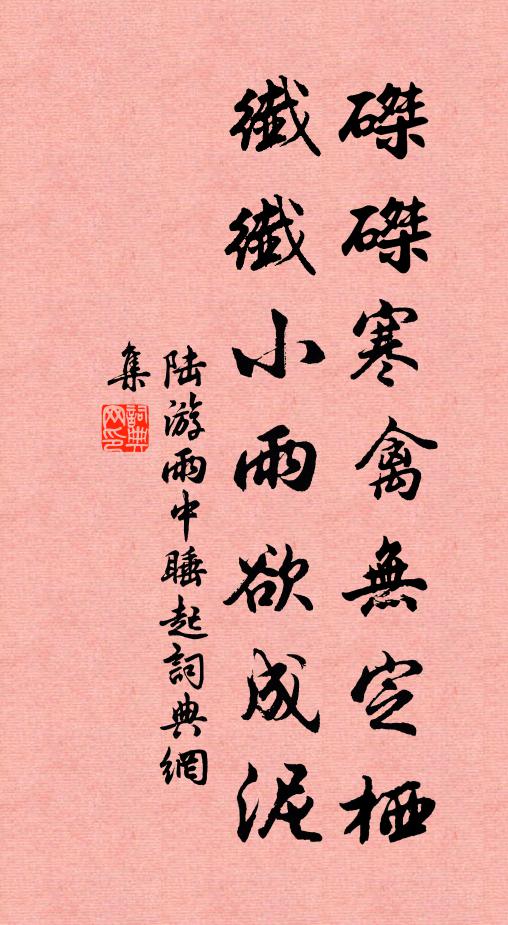 磔磔寒禽無定栖
纖纖小雨欲成泥
陆游雨中睡起詞典網
集
詞典
网印